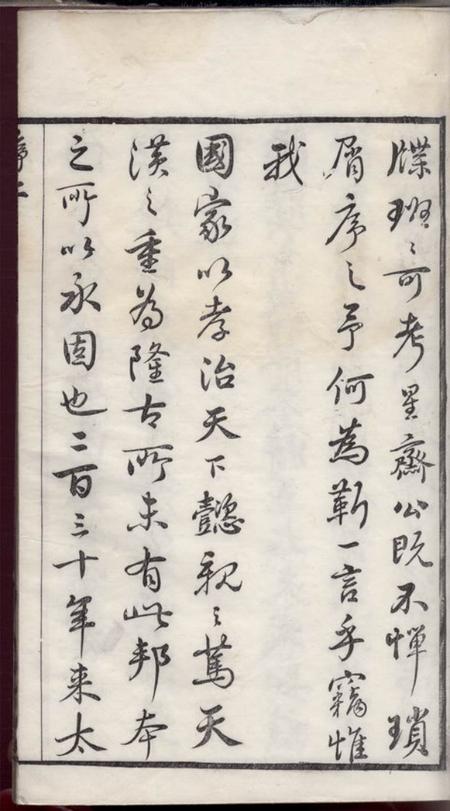 牒班〻可考星齋公既不憚瑣
屑序之予何為靳一言乎竊惟
我
國家以孝治天下懿親之篤天
潢之重為隆古所未有此邦本
之所以承固也二百三十年来太
序二